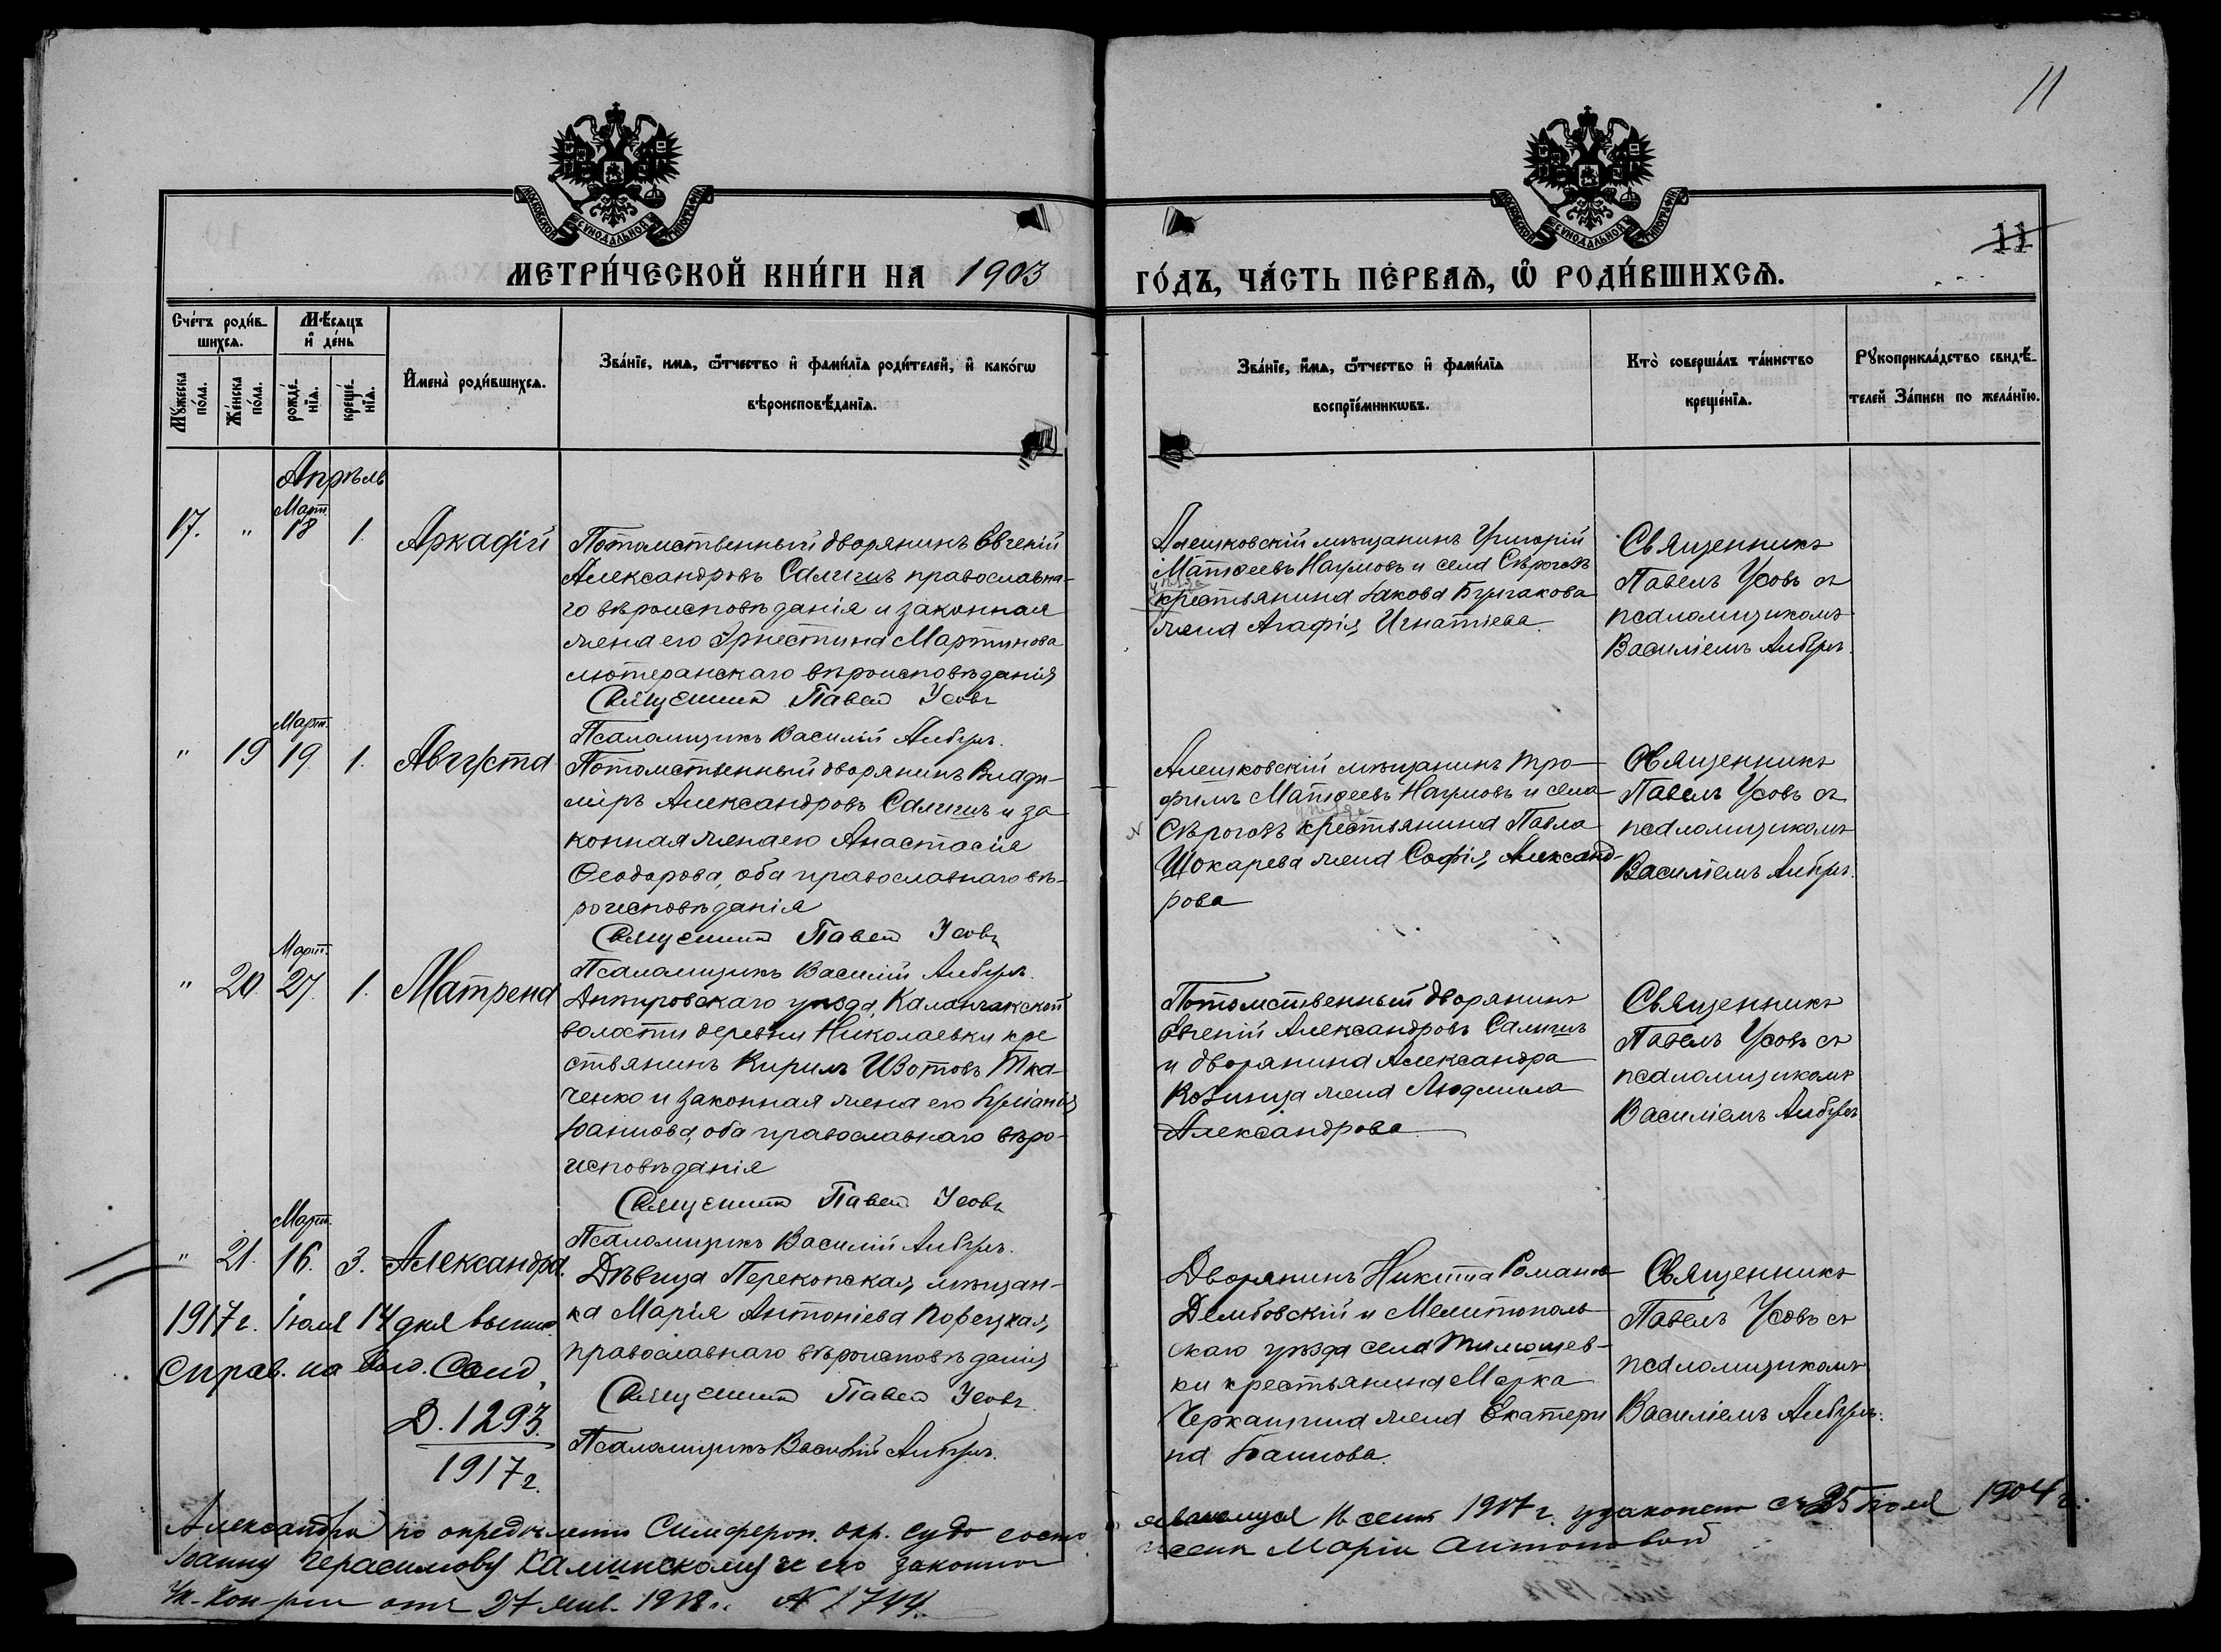 11
МОСКОВСКОЙ СѴНОДАЛЬНОЙ ТИПОГРАФІИ
МОСКОВСКОЙ СѴНОДАЛЬНОЙ ТИПОГРАФІИ
11
МЕТРИ́ЧЕСКОЙ КНИ́ГИ НА 1903
ГО́ДЪ, ЧА́СТЬ ПЕ́РВАѦ, Ѡ РОДИ́ВШИХСѦ.
Сче́тъ роди́в-
шихсѧ.
Мꙋ́жеска по́ла.
Же́нска по́ла.
Мѣ́сѧцъ
и҆ де́нь
рожде́-
нїѧ.
креще́-
нїѧ.
И҆мена̀ роди́вшихсѧ.
Зва́нїе, имѧ, ѻ҆́тчество и҆ фами́лїѧ роди́телей, и҆ како́гѡ
вѣроисповѣ́данїѧ.
Зва́нїе, и҆́мѧ, ѻ҆́тчество и҆ фами́лїѧ
воспрїе́мникѡвъ.
Кто̀ соверша́лъ та́инство
креще́нїѧ.
Рꙋкоприкла́дство свидѣ́-
телей за́писи по жела́нїю.
Апрѣль
17. " Март. 18 1. Аркадій
Потомственный дворянинъ Евгеній
Александровъ Салигинъ православна-
го вѣроисповѣданія и законная
жена его Эрнестина Мартинова
лютеранскаго вѣроисповѣданія
Священникъ Павелъ Усовъ
Псаломщикъ Василій
Алешковскій мѣщанинъ Григорій
Матѳеевъ Наумовъ и села Сѣрогозъ
уѣзда
крестьянина Іакова Булгакова
жена Агафія Игнатіева.
Священникъ
Павелъ Усовъ съ
псаломщикомъ
Василіемъ
" 19 Март. 19 1. Августа
Потомственный дворянинъ Влади-
міръ Александровъ Салигинъ и за
конная жена его Анастасія
Ѳеодорова, оба православнаго вѣ-
роисповѣданія
Священникъ Павелъ Усовъ
Псаломщикъ Василій
Алешковскій мѣщанинъ Тро-
фимъ Матѳеевъ Наумовъ и села
уѣзда
Сѣрогозъ крестьянина Павла
Шокарева жена Софія Александ-
рова
Священникъ
Павелъ Усовъ съ
псаломщикомъ
Василіемъ
" 20. Март. 27. 1. Матрена
Днѣпровскаго уѣзда, Каланчакской
волости деревни Николаевки кре
стьянинъ Кирилъ Изотовъ Тка-
ченко и законная жена его Іуліанія
Іоаннова, оба православнаго вѣро-
исповѣданія
Священникъ Павелъ Усовъ
Псаломщикъ Василій
Потомственный дворянинъ
Евгеній Александровъ Салигинъ
и дворянина Александра
жена Людмила
Александрова
Священникъ
Павелъ Усовъ съ
псаломщикомъ
Василіемъ
" 21. Март. 16. 3. Александра.
Дѣвица Перекопская мѣщан-
ка Марія Антоніева
православнаго вѣроисповѣданія
Священникъ Павелъ Усовъ
Псаломщикъ Василій
Дворянинъ Никита Романов
Дембовскій и Мелитополь-
скаго уѣзда села Тимошев-
ки крестьянина Марка
жена Екатери
на Іоаннова.
Священникъ
Павелъ Усовъ съ
псаломщикомъ
Василіемъ
1917 г. Іюля 14 дня
справ. на
Д. 1293.
1917 г.
Александра по опредѣленію Симфероп. окр. суда состо
явшемуся 16 сент 1917 г. узаконена съ 25 Іюля 1904 г.
Іоанну Герасимову Калинскому и его законной
женѣ Маріи Антоновой
отъ 27 янв. 1918 г. № 1744.